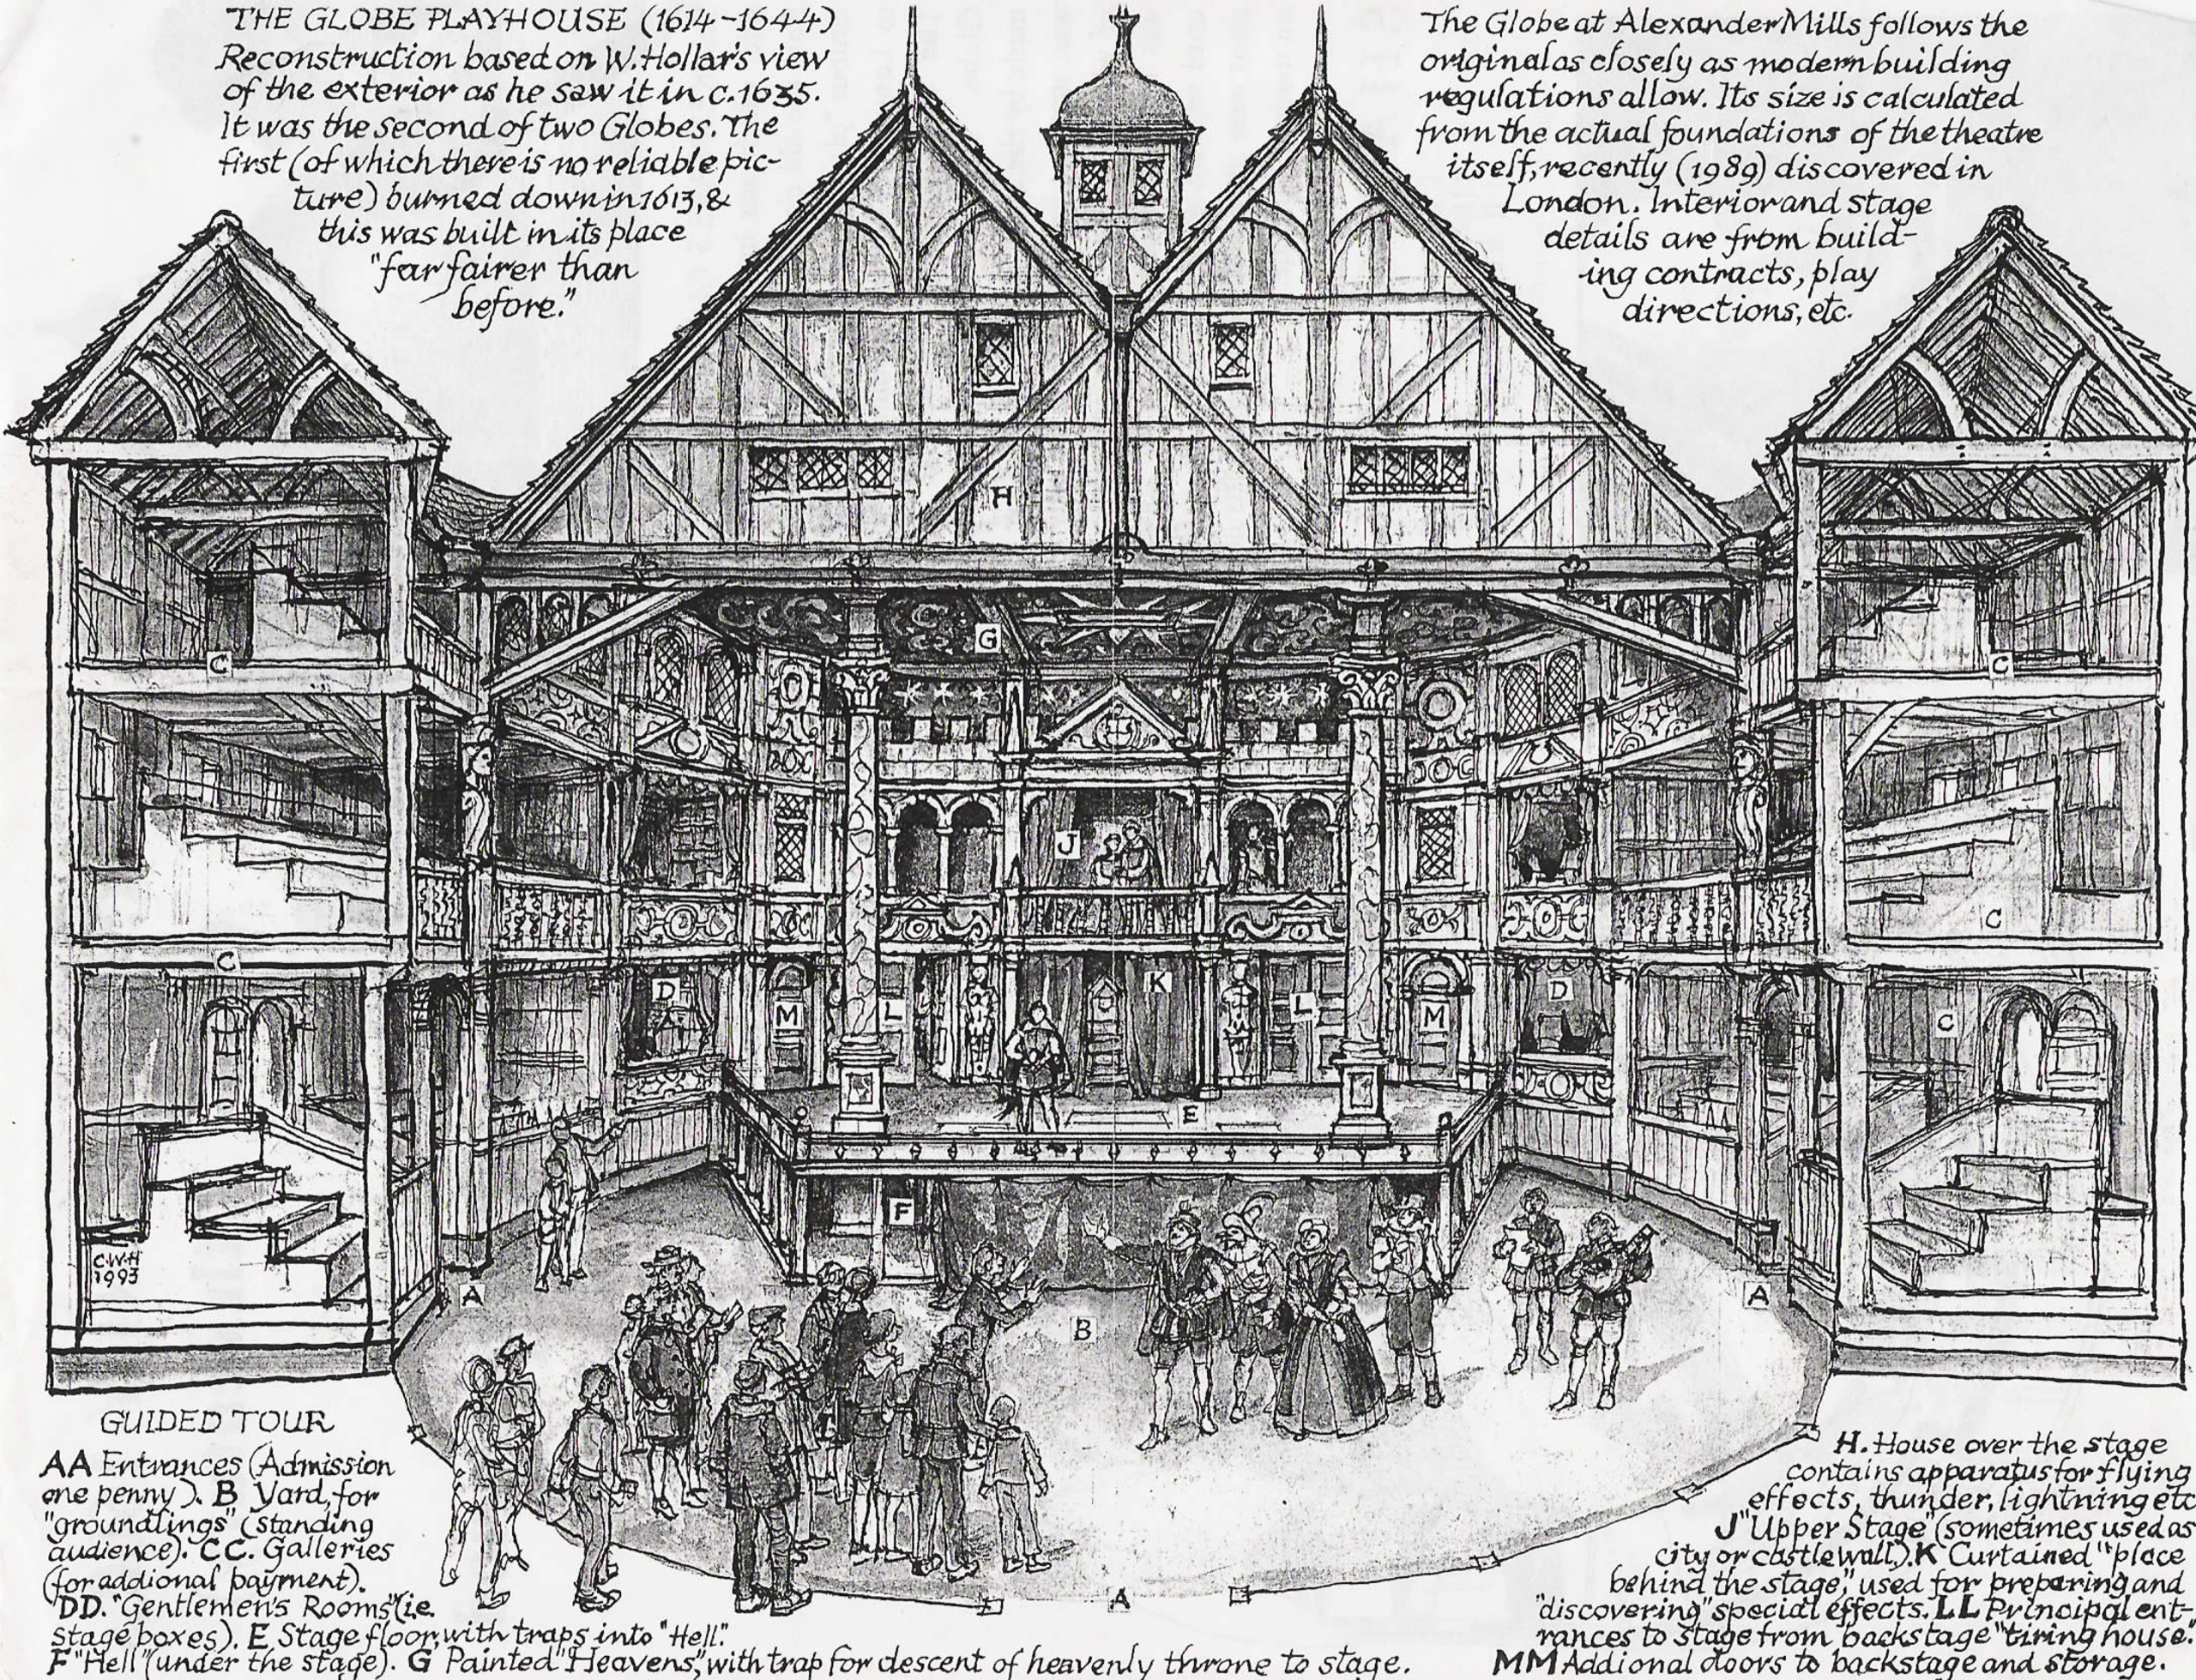 THE GLOBE PLAYHOUSE (1614-1644)
Reconstruction based on W. Hollar's view
of the exterior as he saw it in c.1635.
It was the second of two Globes. The
first (of which there is no reliable pic-
ture) burned down in 1613, &
this was built in its place
"far fairer than
before."
The Globe at Alexander Mills follows the
original as closely as modern building
regulations allow. Its size is calculated
from the actual foundations of the theatre
itself, recently (1989) discovered in
London. Interior and stage
details are from build-
-ing contracts, play
directions, etc.
H
G
C
C
J
C
C
D
M
L
K
L
M
D
C
E
F
C.W.H
1993
A
B
A
A
GUIDED TOUR
AA Entrances (Admission
one penny). B Yard, for
"groundlings" (standing
audience). CC. Galleries
(for addional payment).
DD. "Gentlemen's Rooms" (i.e.
stage boxes). E Stage floor, with traps into "Hell".
F "Hell" (under the stage). G Painted "Heavens", with trap for descent of heavenly throne to stage.
H. House over the stage
contains apparatus for flying
effects, thunder, lightning etc
J "Upper Stage" (sometimes used as
city or castle wall). K Curtained "place
behind the stage," used for preparing and
"discovering" special effects. LL Principal ent-
rances to stage from backstage "tiring house."
MM Addional doors to backstage and storage.